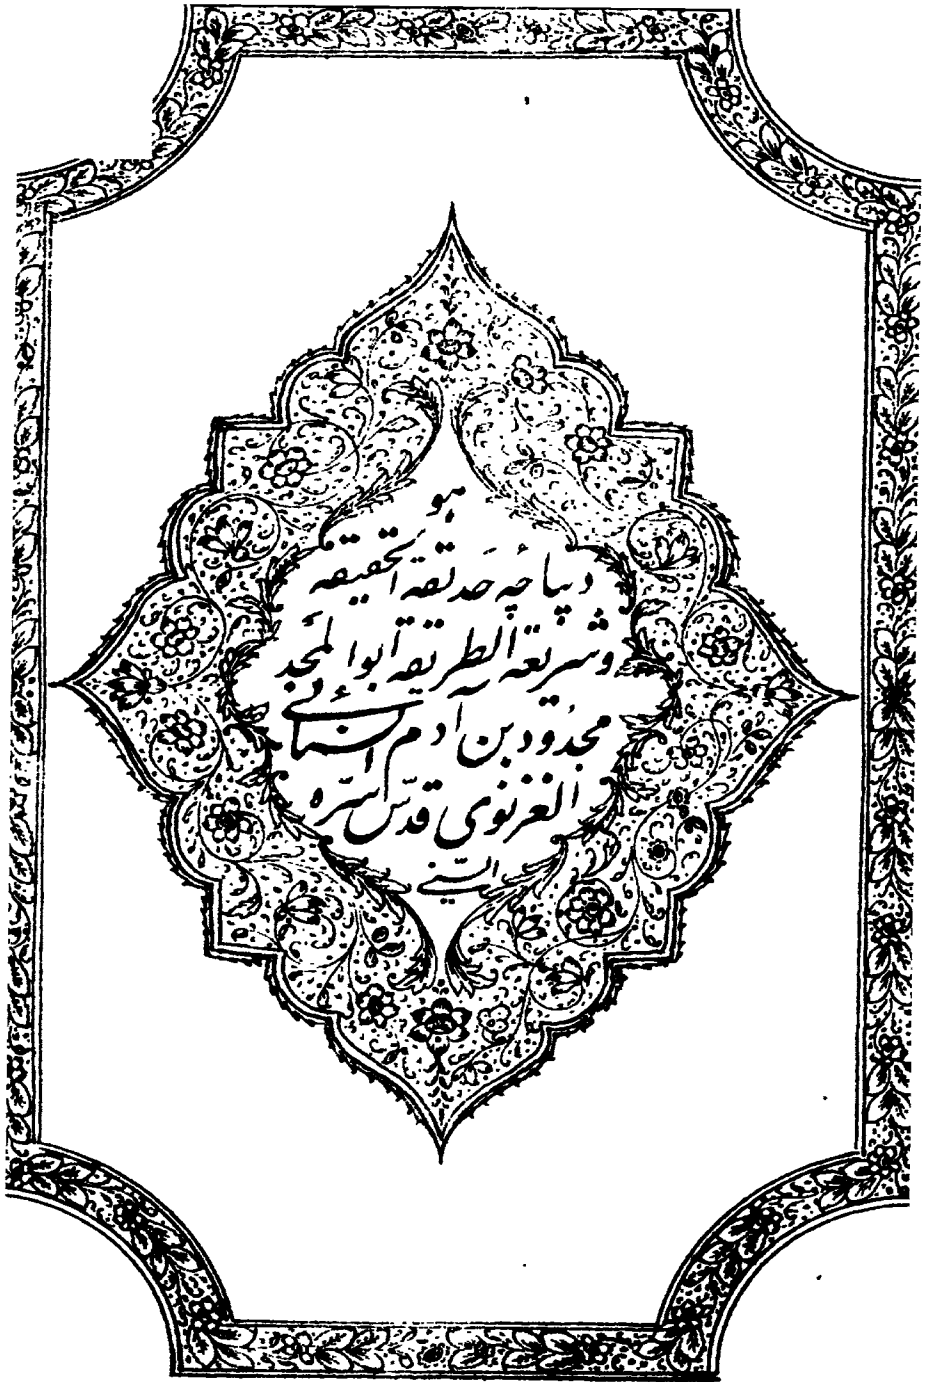 هو
دیباچه حدیقة الحقیقه
و شریعة الطریقه ابو المجد
مجدود بن آدم السنائی
الغزنوی قدّس سرّه